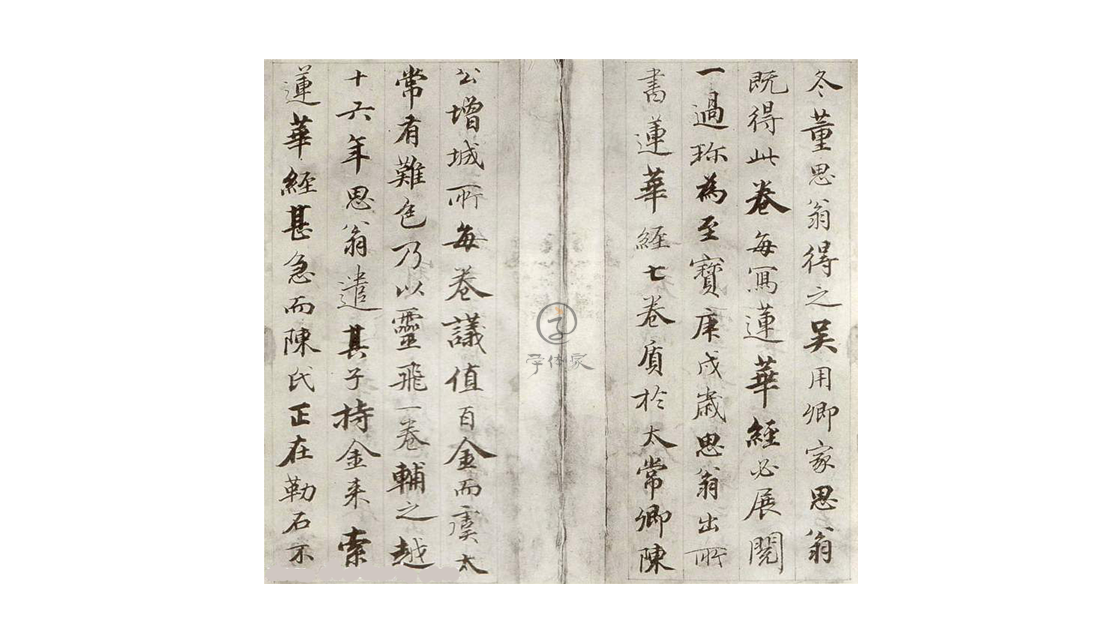 冬董思翁得之吴用卿家思翁
既得此卷每寫蓮華經必展閱
一過珎為至寶庚戌歲思翁出所
書蓮華經七卷質於太常卿陳
公增城所每卷議值百金而虞太
常有難色乃以靈飛一卷輔之越
十六年思翁遣其子持金来索
蓮華經甚急而陳氏正在勒石不
字体家